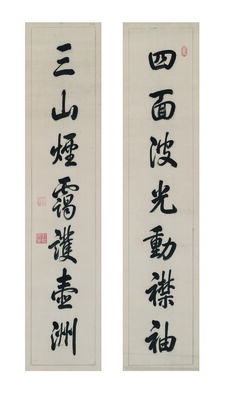 四面波光動襟袖
三山煙靄護壺洲